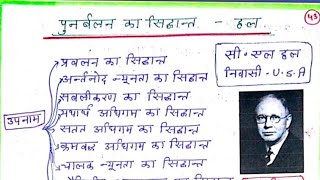 पुनर्बलन का सिद्धान्त - हल
43
सी. एल हल
निवासी - U.S.A
उपनाम
प्रबलन का सिद्धान्त
अर्न्तनोद न्यूनता का सिद्धान्त
सबलीकरण का सिद्धान्त
यथार्थ अधिगम का सिद्धान्त
सतत अधिगम का सिद्धान्त
क्रमबद्ध अधिगम का सिद्धान्त
चालक न्यूनता का सिद्धान्त